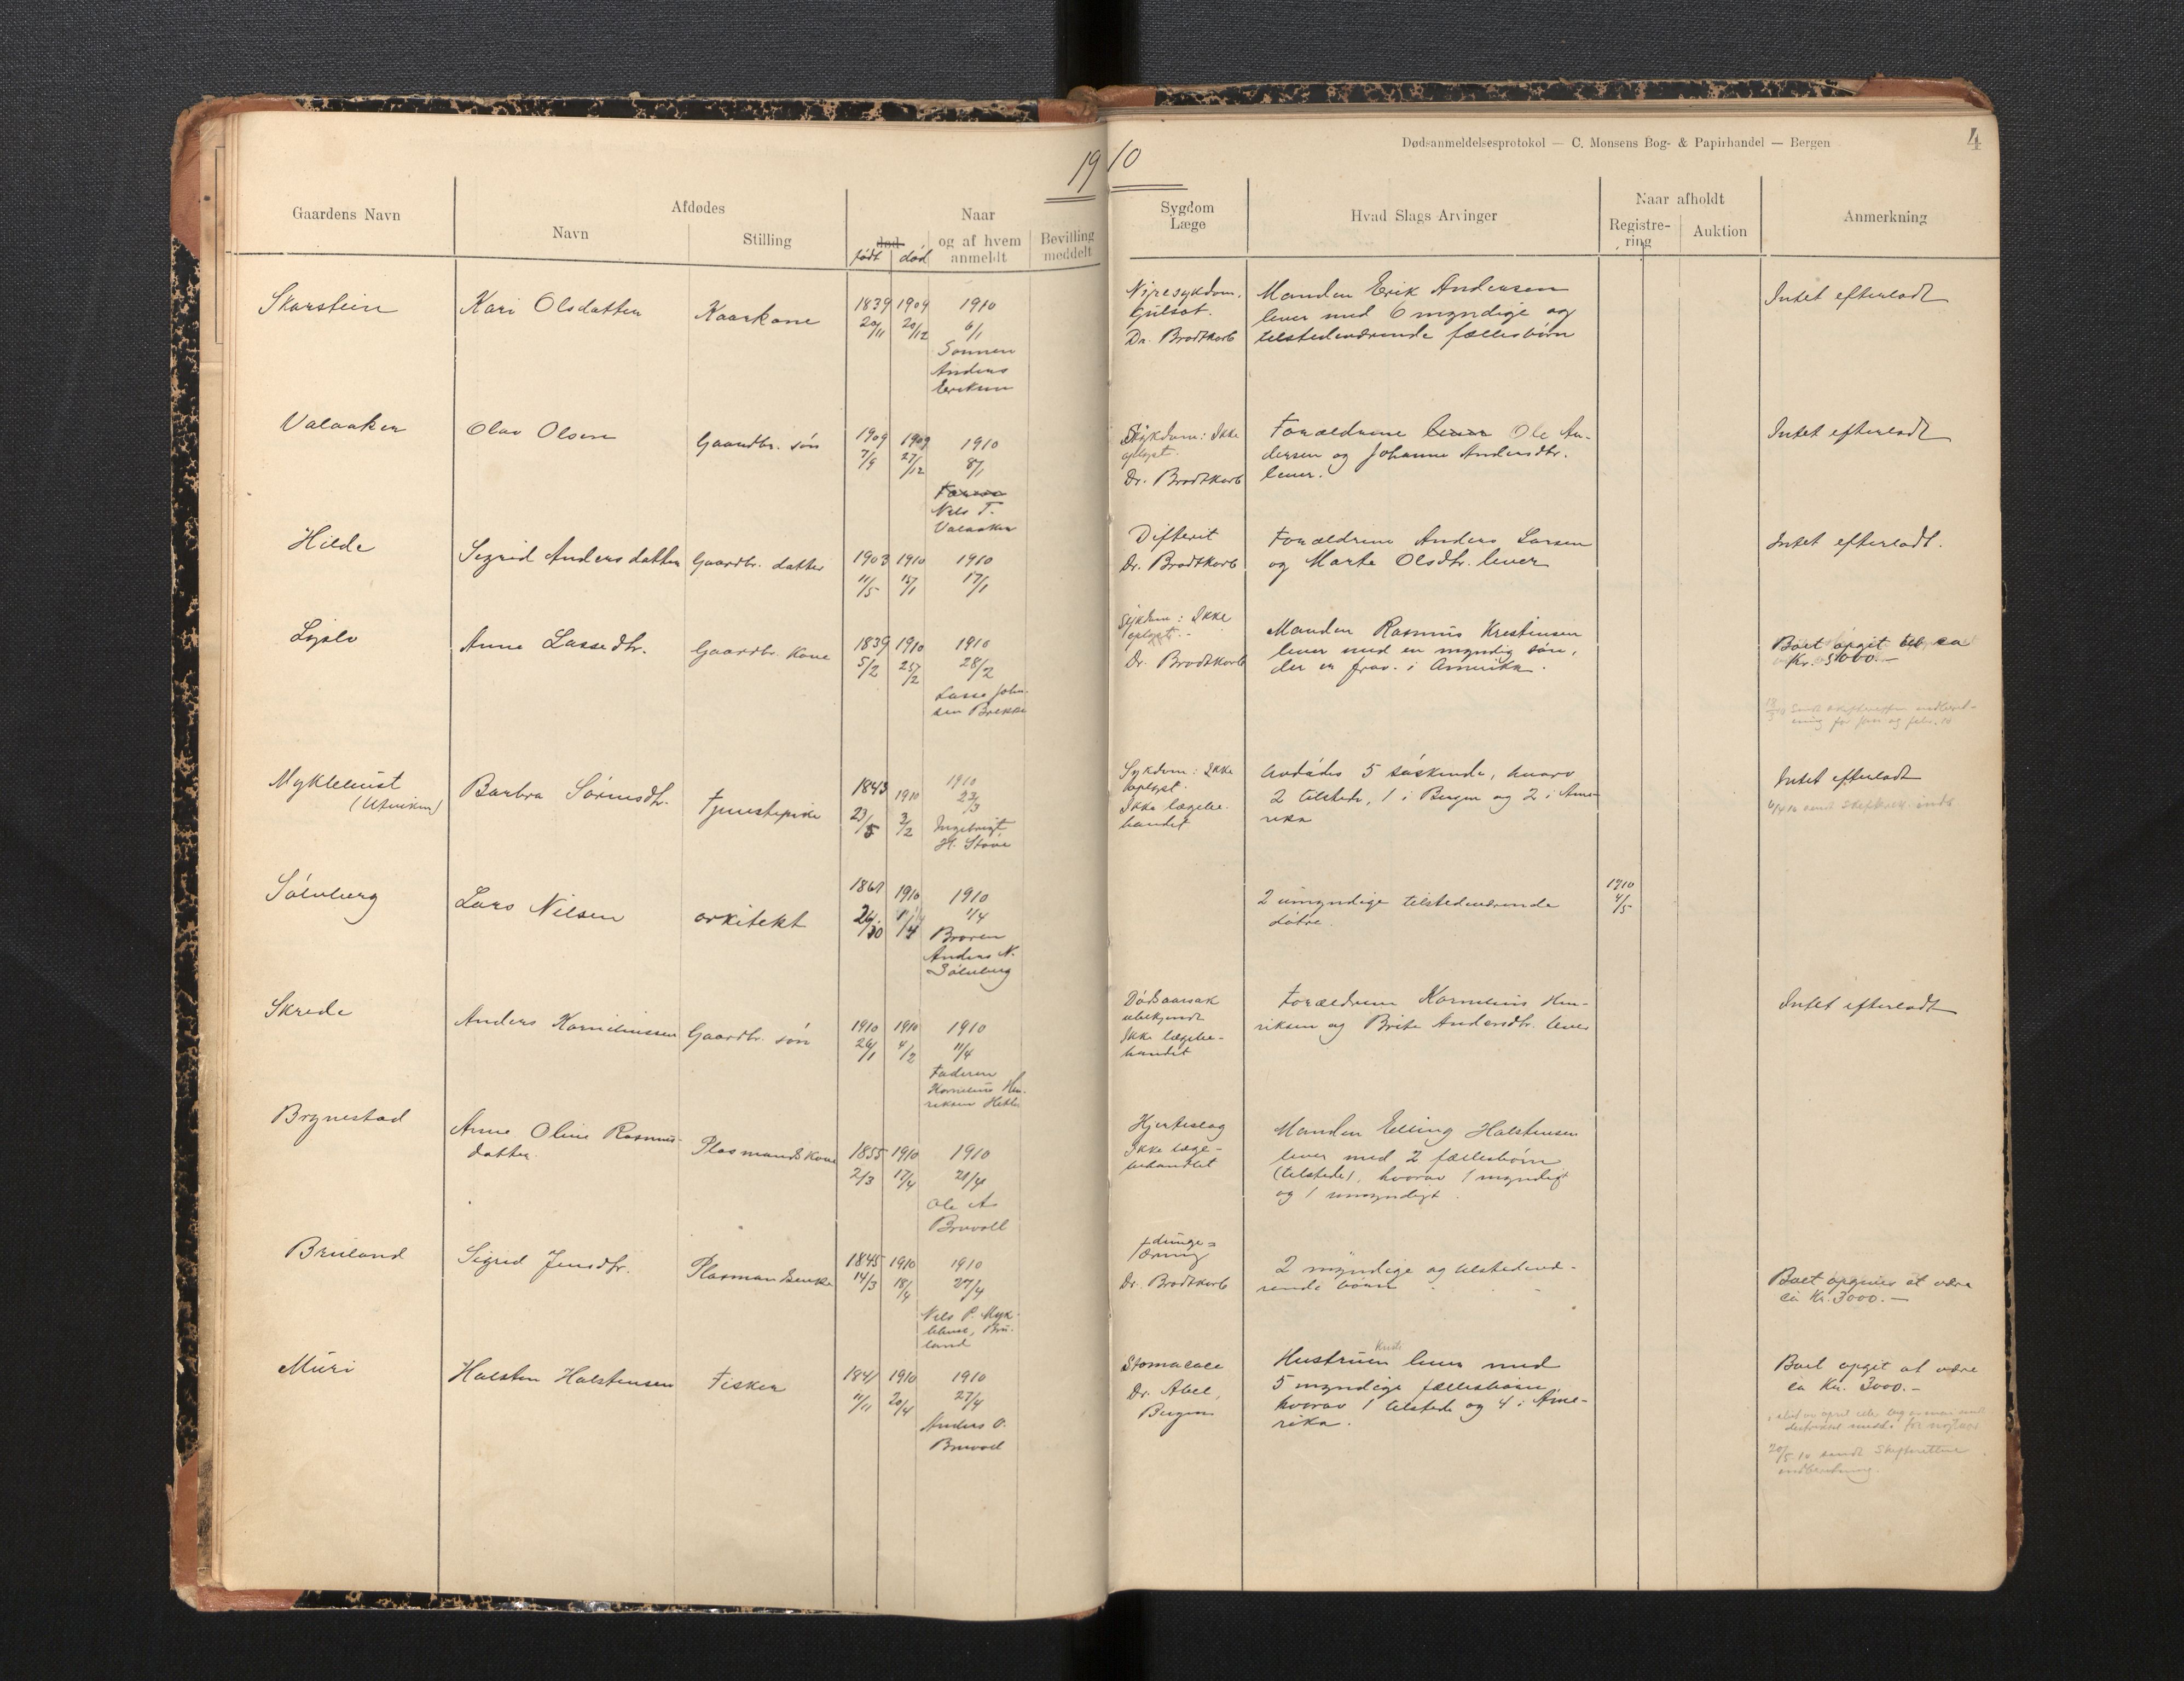 Dødsanmeldelsesprotokol — C. Monsens Bog- & Papirhandel — Bergen
4
1910
Gaardens Navn
Afdødes
Navn
Stilling
Naar
død
født
død
og af hvem anmeldt
Bevilling meddelt
Sygdom
Læge
Hvad Slags Arvinger
Naar afholdt
Registrering
Auktion
Anmerkning
Skarstein
Kari Olsdatter
Kaarkone
1839 1909 1910
20/11 20/12 6/1
Sønnen
Anders
Eriksen
Nyresykdom.
Gulsot.
Dr. Brodtkorb
Manden Erik Andersen
lever med 6 myndige og
tilstedeværende fællesbørn
Intet efterladt
Valaaker
Olav Olsen
Gaardbr. søn
1909 1909 1910
7/9 27/12 8/1
Nils T.
Valaaker
Sykdom: Ikke
oplyst.
Dr. Brodtkorb
Forældrene lever Ole An-
dersen og Johanne Andersdtr.
lever.
Intet efterladt
Hilde
Sigrid Andersdatter
Gaardbr. datter
1903 1910 1910
11/5 15/1 17/1
Difterit
Dr. Brodtkorb
Forældrene Anders Larsen
og Marte Olsdtr. lever
Intet efterladt.
Anne Lassedtr.
Gaardbr. kone
1839 1910 1910
5/2 25/2 28/2
Lasse John-
sen Brekke
Sykdom: Ikke
oplyst.
Dr. Brodtkorb
Manden Rasmus Krestensen
lever med en myndig søn,
der er frav. i Amerika.
Boet opgit ca
Kr. 5000.—
Myklebust
(Utviken)
Barbra Sørensdtr.
Tjenestepike
1843 1910 1910
23/5 3/2 23/3
Ingebrigt
H. Støve
Sykdom: Ikke
oplyst.
Ikke lægebe-
handlet
Avdødes 5 søskende, hvorav
2 tilstede, 1 i Bergen og 2 i Ame-
rika
Intet efterladt
Sølvberg
Lars Nilsen
arkitekt
1861 1910 1910
11/4
Broren
Anders N.
Sølvberg
2 umyndige tilstedeværende
døtre.
1910
4/5
Skrede
Anders Korneliussen
Gaardbr. søn
1910 1910 1910
26/1 4/2 11/4
Faderen
Kornelius Hen-
riksen
Dødsaarsak
ubekjendt
Ikke lægebe-
handlet
Forældrene Kornelius Hen-
riksen og Brite Andersdtr. lever
Intet efterladt
Brynestad
Anne Oline Rasmus-
datter.
Plasmandskone
1855 1910 1910
2/3 17/4 21/4
Ole A
Bruvoll
Hjerteslag
Ikke læge-
behandlet
Manden Elling Halstensen
lever med 2 fællesbørn
(tilstede), hvorav 1 myndigt
og 1 umyndigt.
Bruland
Sigrid Jensdtr.
Plasmandsenke
1845 1910 1910
14/3 18/4 27/4
Nils P. Myk-
lebust, Bru-
land
Dr. Brodtkorb
2 myndige og tilstedevæ-
rende børn
Boet opgives at være
ca Kr. 3000.—
Muri
Halsten Halstensen
Fisker
1841 1910 1910
11/11 20/4 27/4
Anders O.
Bruvoll
Dr. Abel,
Bergen
Hustruen lever med
5 myndige fællesbørn,
hvorav 1 tilstede og 4 i Ame-
rika.
Boet opgit at være
ca Kr. 3000.-
20/5 10 sendt Skifteretten
indberetning.